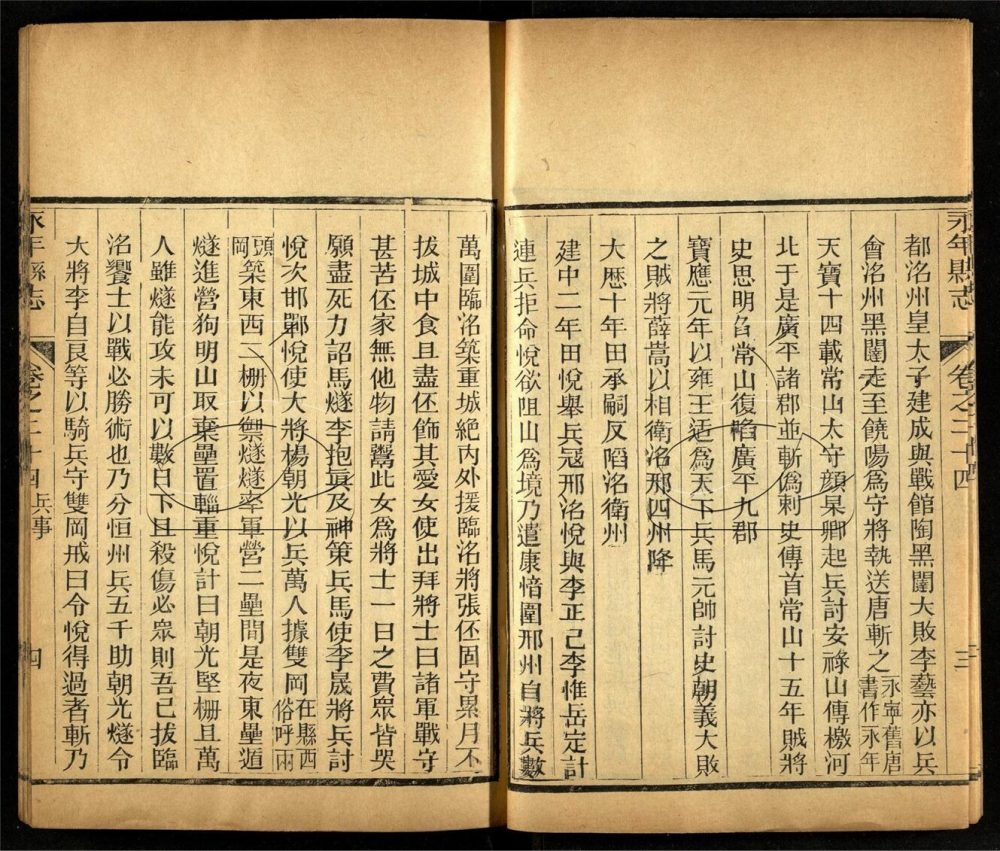 永年縣志
卷之二十四
三
都洺州皇太子建成與戰館陶黑闥大敗李藝亦以兵
會洺州黑闥走至饒陽為守將執送唐斬之永寧舊唐書作永年
天寶十四載常山太守顔杲卿起兵討安祿山傳檄河
北于是廣平諸郡並斬僞刺史傳首常山十五年賊將
史思明䧟常山復䧟廣平九郡
寶應元年以雍王适為天下兵馬元帥討史朝義大敗
之賊將薛嵩以相衛洺邢四州降
大厯十年田承嗣反䧟洺衛州
建中二年田悅舉兵冦邢洺悅與李正己李惟岳定計
連兵拒命悅欲阻山為境乃遣康愔圍邢州自將兵數
萬圍臨洺築重城絕內外援臨洺將張伾固守累月不
拔城中食且盡伾飾其愛女使出拜將士曰諸軍戰守
甚苦伾家無他物請鬻此女為將士一日之費眾皆哭
願盡死力詔馬燧李抱眞及神策兵馬使李晟將兵討
悅次邯鄲悅使大將楊朝光以兵萬人據雙岡在縣西俗呼兩
頭岡築東西二栅以禦燧燧率軍營二壘間是夜東壘遁
燧進營狗明山取棄壘置輜重悅計曰朝光堅栅且萬
人雖燧能攻未可以數日下且殺傷必眾則吾已拔臨
洺饗士以戰必勝術也乃分恒州兵五千助朝光燧令
大將李自良等以騎兵守雙岡戒曰令悅得過者斬乃
永年縣志
卷之二十四 兵事
四